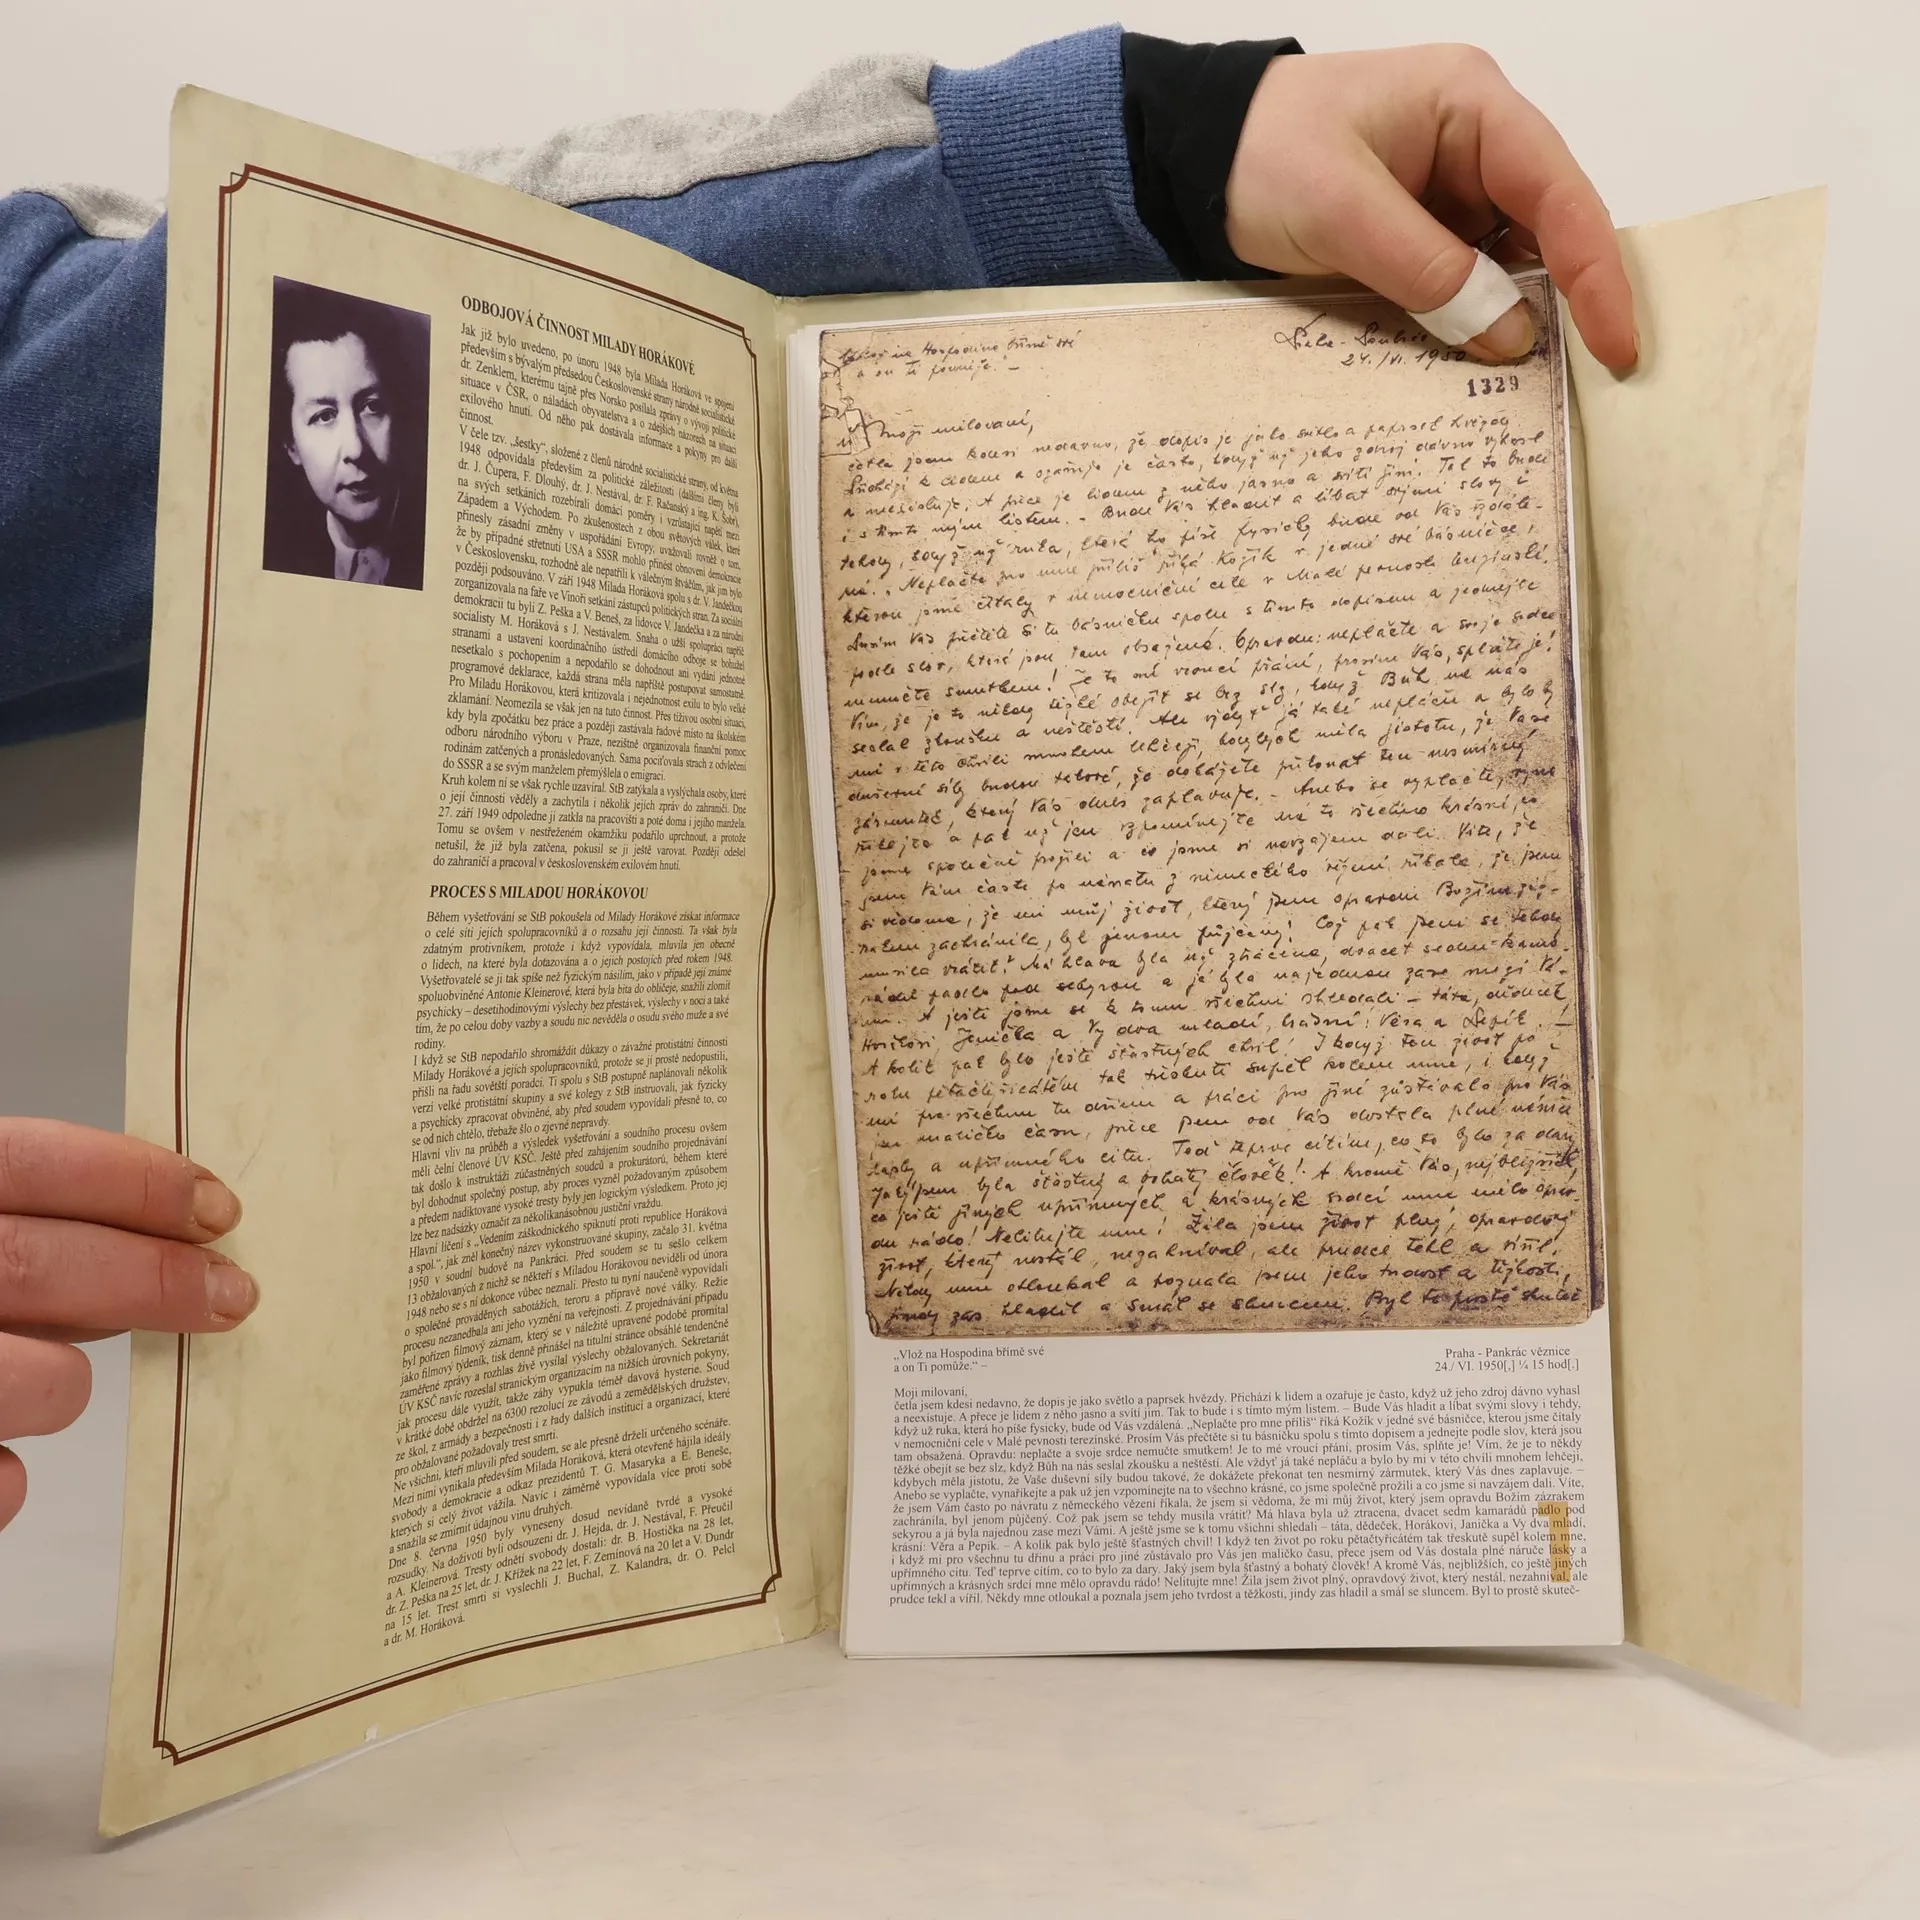 ODBOJOVÁ ČINNOST MILADY HORÁKOVÉ
Jak již bylo uvedeno, po únoru 1948 byla Milada Horáková ve spojení
především s bývalým předsedou Československé strany národně socialistické
dr. Zenklem, kterému tajně přes Norsko posílala zprávy o vývoji politické
situace v ČSR, o náladách obyvatelstva a o zdejších názorech na situaci
exilového hnutí. Od něho pak dostávala informace a pokyny pro další
činnost.
V čele tzv. „šestky“, složené z členů národně socialistické strany, od května
1948 odpovídala především za politické záležitosti (dalšími členy byli
dr. J. Čupera, F. Dlouhý, dr. J. Nestával, dr. F. Račanský a ing. K. Šobr),
na svých setkáních rozebírali domácí poměry i vzrůstající napětí mezi
Západem a Východem. Po zkušenostech z obou světových válek, které
přinesly zásadní změny v uspořádání Evropy, uvažovali rovněž o tom,
že by případné střetnutí USA a SSSR mohlo přinést obnovení demokracie
v Československu, rozhodně ale nepatřili k válečným štváčům, jak jim bylo
později podsouváno. V září 1948 Milada Horáková spolu s dr. V. Jandečkou
zorganizovala na faře ve Vinoři setkání zástupců politických stran. Za sociální
demokracii tu byli Z. Peška a V. Beneš, za lidovce V. Jandečka a za národní
socialisty M. Horáková s J. Nestávalem. Snaha o užší spolupráci napříč
stranami a ustavení koordinačního ústředí domácího odboje se bohužel
nesetkalo s pochopením a nepodařilo se dohodnout ani vydání jednotné
programové deklarace, každá strana měla napříště postupovat samostatně.
Pro Miladu Horákovou, která kritizovala i nejednotnost exilu to bylo velké
zklamání. Neomezila se však jen na tuto činnost. Přes tíživou osobní situaci,
kdy byla zpočátku bez práce a později zastávala řadové místo na školském
odboru národního výboru v Praze, nezištně organizovala finanční pomoc
rodinám zatčených a pronásledovaných. Sama pociťovala strach z odvlečení
do SSSR a se svým manželem přemýšlela o emigraci.
Kruh kolem ní se však rychle uzavíral. StB zatýkala a vyslýchala osoby, které
o její činnosti věděly a zachytila i několik jejích zpráv do zahraničí. Dne
27. září 1949 odpoledne ji zatkla na pracovišti a poté doma i jejího manžela.
Tomu se ovšem v nestřeženém okamžiku podařilo uprchnout, a protože
netušil, že již byla zatčena, pokusil se ji ještě varovat. Později odešel
do zahraničí a pracoval v československém exilovém hnutí.
PROCES S MILADOU HORÁKOVOU
Během vyšetřování se StB pokoušela od Milady Horákové získat informace
o celé síti jejích spolupracovníků a o rozsahu její činnosti. Ta však byla
zdatným protivníkem, protože i když vypovídala, mluvila jen obecně
o lidech, na které byla dotazována a o jejich postojích před rokem 1948.
Vyšetřovatelé se ji tak spíše než fyzickým násilím, jako v případě její známé
spoluobviněné Antonie Kleinerové, která byla bita do obličeje, snažili zlomit
psychicky – desetihodinovými výslechy bez přestávek, výslechy v noci a také
tím, že po celou dobu vazby a soudu nic nevěděla o osudu svého muže a své
rodiny.
I když se StB nepodařilo shromáždit důkazy o závažné protistátní činnosti
Milady Horákové a jejích spolupracovníků, protože se jí prostě nedopustili,
přišli na řadu sovětští poradci. Ti spolu s StB postupně naplánovali několik
verzí velké protistátní skupiny a své kolegy z StB instruovali, jak fyzicky
a psychicky zpracovat obviněné, aby před soudem vypovídali přesně to, co
se od nich chtělo, třebaže šlo o zjevné nepravdy.
Hlavní vliv na průběh a výsledek vyšetřování a soudního procesu ovšem
měli čelní členové ÚV KSČ. Ještě před zahájením soudního projednávání
tak došlo k instruktáži zúčastněných soudců a prokurátorů, během které
byl dohodnut společný postup, aby proces vyzněl požadovaným způsobem
a předem nadiktované vysoké tresty byly jen logickým výsledkem. Proto jej
lze bez nadsázky označit za několikanásobnou justiční vraždu.
Hlavní líčení s „Vedením záškodnického spiknutí proti republice Horáková
a spol.“, jak zněl konečný název vykonstruované skupiny, začalo 31. května
1950 v soudní budově na Pankráci. Před soudem se tu sešlo celkem
13 obžalovaných z nichž se někteří s Miladou Horákovou neviděli od února
1948 nebo se s ní dokonce vůbec neznali. Přesto tu nyní naučeně vypovídali
o společně prováděných sabotážích, teroru a přípravě nové války. Režie
procesu nezanedbala ani jeho vyznění na veřejnosti. Z projednávání případu
byl pořízen filmový záznam, který se v náležitě upravené podobě promítal
jako filmový týdeník, tisk denně přinášel na titulní stránce obsáhlé tendenčně
zaměřené zprávy a rozhlas živě vysílal výslechy obžalovaných. Sekretariát
ÚV KSČ navíc rozeslal stranickým organizacím na nižších úrovních pokyny,
jak procesu dále využít, takže záhy vypukla téměř davová hysterie. Soud
v krátké době obdržel na 6300 rezolucí ze závodů a zemědělských družstev,
ze škol, z armády a bezpečnosti i z řady dalších institucí a organizací, které
pro obžalované požadovaly trest smrti.
Ne všichni, kteří mluvili před soudem, se ale přesně drželi určeného scénáře.
Mezi nimi vynikala především Milada Horáková, která otevřeně hájila ideály
svobody a demokracie a odkaz prezidentů T. G. Masaryka a E. Beneše,
kterých si celý život vážila. Navíc i záměrně vypovídala více proti sobě
a snažila se zmírnit údajnou vinu druhých.
Dne 8. června 1950 byly vyneseny dosud nevídaně tvrdé a vysoké
rozsudky. Na doživotí byli odsouzeni dr. J. Hejda, dr. J. Nestával, F. Přeučil
a A. Kleinerová. Tresty odnětí svobody dostali: dr. B. Hostička na 28 let,
dr. Z. Peška na 25 let, dr. J. Křížek na 22 let, F. Zemínová na 20 let a V. Dundr
na 15 let. Trest smrti si vyslechli J. Buchal, Z. Kalandra, dr. O. Pecl
a dr. M. Horáková.
na Hospodina břímě své
a on Ti pomůže." –
24./VI. 1950
1329
Moji milovaní,
četla jsem kdesi nedavno, že dopis je jako světlo a paprsek hvězdy.
Přichází k lidem a ozařuje je často, když už jeho zdroj dávno vyhasl
a neexistuje. A přece je lidem z něho jasno a svítí jim. Tak to bude
i s tímto mým listem. – Bude Vás hladit a líbat svými slovy i
tehdy, když už ruka, která ho píše fysicky bude od Vás vzdále-
ná. „Neplačte pro mne příliš" říká Kožík v jedné své básničce,
kterou jsme čítaly v nemocniční cele v Malé pevnosti terezínské.
Prosím Vás přečtěte si tu básničku spolu s tímto dopisem a jednejte
podle slov, která jsou tam obsažena. Opravdu: neplačte a svoje srdce
nemučte smutkem! Je to mé vroucí přání, prosím Vás, splňte je!
Vím, že je to někdy těžké obejít se bez slz, když Bůh na nás
seslal zkoušku a neštěstí. Ale vždyť já také nepláču a bylo by
mi v této chvíli mnohem lehčeji, kdybych měla jistotu, že Vaše
duševní síly budou takové, že dokážete překonat ten nesmírný
zármutek, který Vás dnes zaplavuje. – Anebo se vyplačte, vyna
říkejte a pak už jen vzpomínejte na to všechno krásné, co
jsme společně prožili a co jsme si navzájem dali. Víte, že
jsem Vám často po návratu z německého vězení říkala, že jsem
si vědoma, že mi můj život, který jsem opravdu Božím záz-
rakem zachránila, byl jenom půjčený! Což pak jsem se tehdy
musila vrátit? Má hlava byla už ztracena, dvacet sedm kama-
rádů padlo pod sekyrou a já byla najednou zase mezi Vá-
mi. A ještě jsme se k tomu všichni shledali – táta, dědeček,
Horákovi, Janička a Vy dva mladí, krásní: Věra a Pepík. –
A kolik pak bylo ještě šťastných chvil! I když ten život po
roku pětačtyřicátém tak třeskutě supěl kolem mne, i když
mi pro všechnu tu dřinu a práci pro jiné zůstávalo pro Vás
jen maličko času, přece jsem od Vás dostala plné náruče
lásky a upřímného citu. Teď teprve cítím, co to bylo za dary
Jaký jsem byla šťastný a bohatý člověk! A kromě Vás, nejbližších,
co ještě jiných upřímných a krásných srdcí mne mělo oprav-
du rádo! Nelitujte mne! Žila jsem život plný, opravdový
život, který nestál, nezahníval, ale prudce tekl a vířil.
Někdy mne otloukal a poznala jsem jeho tvrdost a těžkosti,
jindy zas hladil a smál se sluncem. Byl to prostě skuteč
„Vlož na Hospodina břímě své
a on Ti pomůže.“ –
Praha - Pankrác věznice
24./ VI. 1950[,] ¼ 15 hod[.]
Moji milovaní,
četla jsem kdesi nedavno, že dopis je jako světlo a paprsek hvězdy. Přichází k lidem a ozařuje je často, když už jeho zdroj dávno vyhasl
a neexistuje. A přece je lidem z něho jasno a svítí jim. Tak to bude i s tímto mým listem. – Bude Vás hladit a líbat svými slovy i tehdy,
když už ruka, která ho píše fysicky, bude od Vás vzdálená. „Neplačte pro mne příliš“ říká Kožík v jedné své básničce, kterou jsme čítaly
v nemocniční cele v Malé pevnosti terezínské. Prosím Vás přečtěte si tu básničku spolu s tímto dopisem a jednejte podle slov, která jsou
tam obsažená. Opravdu: neplačte a svoje srdce nemučte smutkem! Je to mé vroucí přání, prosím Vás, splňte je! Vím, že je to někdy
těžké obejít se bez slz, když Bůh na nás seslal zkoušku a neštěstí. Ale vždyť já také nepláču a bylo by mi v této chvíli mnohem lehčeji,
kdybych měla jistotu, že Vaše duševní síly budou takové, že dokážete překonat ten nesmírný zármutek, který Vás dnes zaplavuje. –
Anebo se vyplačte, vynaříkejte a pak už jen vzpomínejte na to všechno krásné, co jsme společně prožili a co jsme si navzájem dali. Víte,
že jsem Vám často po návratu z německého vězení říkala, že jsem si vědoma, že mi můj život, který jsem opravdu Božím zázrakem
zachránila, byl jenom půjčený. Což pak jsem se tehdy musila vrátit? Má hlava byla už ztracena, dvacet sedm kamarádů padlo pod
sekyrou a já byla najednou zase mezi Vámi. A ještě jsme se k tomu všichni shledali – táta, dědeček, Horákovi, Janička a Vy dva mladí,
krásní: Věra a Pepík. – A kolik pak bylo ještě šťastných chvil! I když ten život po roku pětačtyřicátém tak třeskutě supěl kolem mne,
i když mi pro všechnu tu dřinu a práci pro jiné zůstávalo pro Vás jen maličko času, přece jsem od Vás dostala plné náruče lásky a
upřímného citu. Teď teprve cítím, co to bylo za dary. Jaký jsem byla šťastný a bohatý člověk! A kromě Vás, nejbližších, co ještě jiných
upřímných a krásných srdcí mne mělo opravdu rádo! Nelitujte mne! Žila jsem život plný, opravdový život, který nestál, nezahníval, ale
prudce tekl a vířil. Někdy mne otloukal a poznala jsem jeho tvrdost a těžkosti, jindy zas hladil a smál se sluncem. Byl to prostě skuteč-